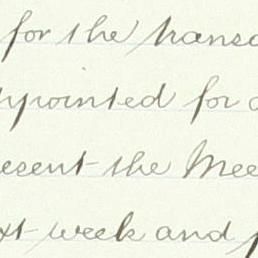 for the transa
ppointed for a
esent the Mee
xt week and